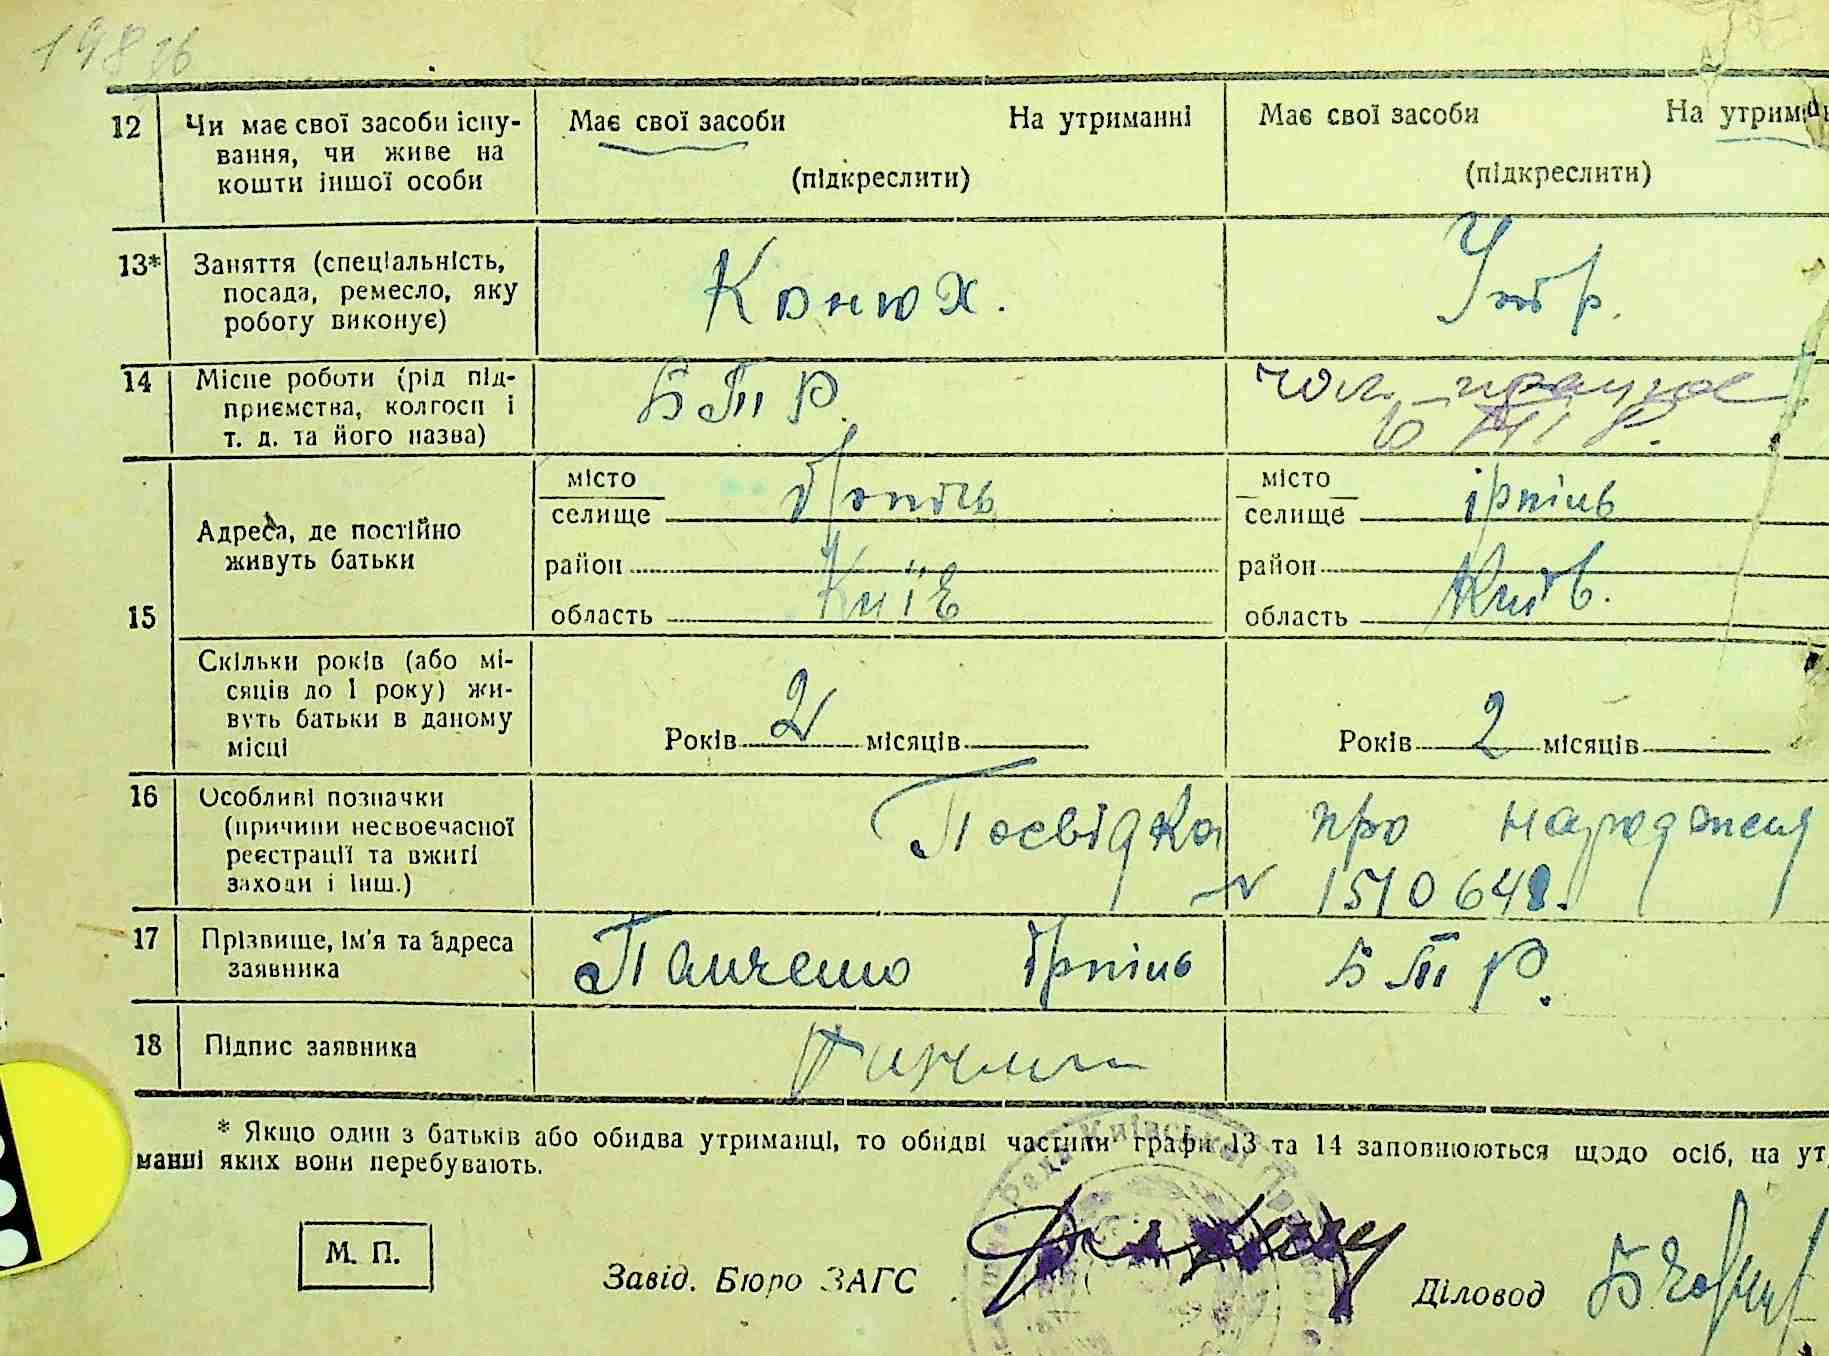 198
12 Чи має свої засоби існу- Має свої засоби На утриманні Має свої засоби На утрим
вання, чи живе на
кошти іншої особи (підкреслити) (підкреслити)
13* Заняття (спеціальність,
посада, ремесло, яку Конюх.
роботу виконує)
14 Місце роботи (рід під- Б Т Р. чол. працює
приємства, колгосп і Б Т Р.
т. д. та його назва)
місто місто
селище Ірпінь селище ірпінь
15 Адреса, де постійно
живуть батьки район район
область Київ область Київ.
Скільки років (або мі-
сяців до 1 року) жи-
вуть батьки в даному
місці Років 2 місяців Років 2 місяців
16 Особливі позначки
(причини несвоєчасної Посвідка про народження
реєстрації та вжиті
заходи і інш.) № 1510648.
17 Прізвище, ім'я та адреса
заявника Панченко Ірпінь Б Т Р.
18 Підпис заявника
* Якщо один з батьків або обидва утриманці, то обидві частини графи 13 та 14 заповнюються щодо осіб, на ут
манні яких вони перебувають.
М. П.
Завід. Бюро ЗАГС Діловод